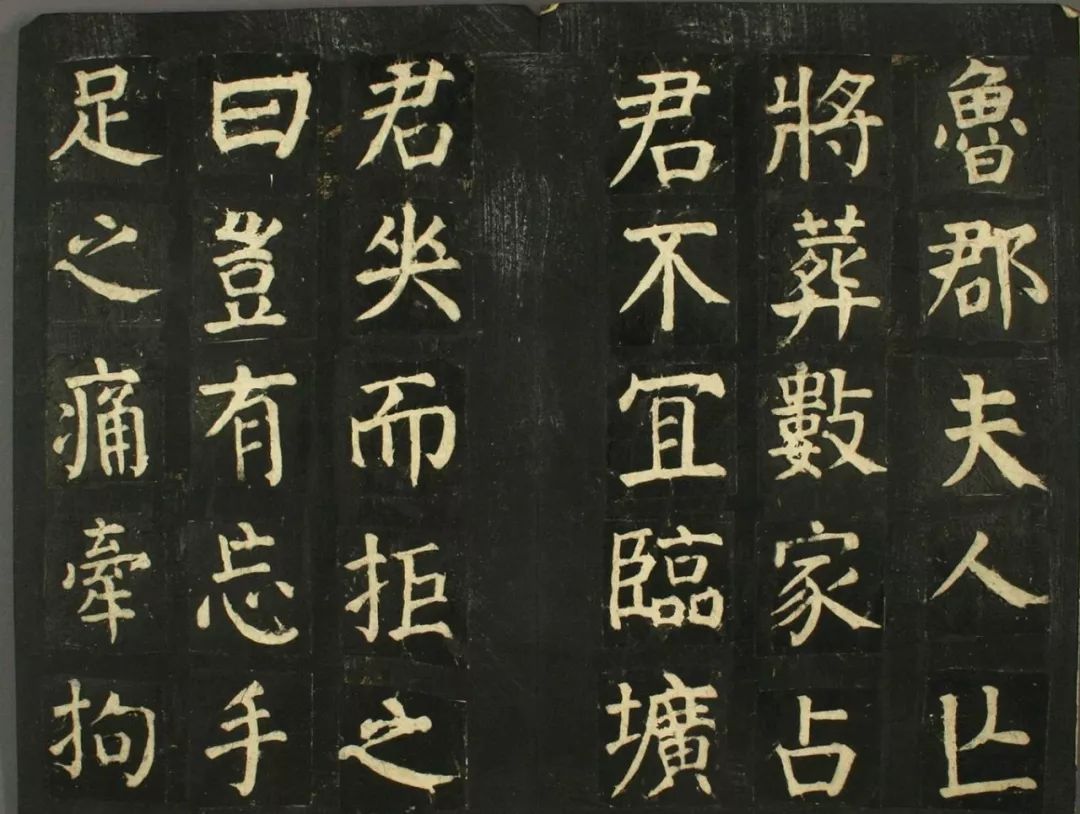 魯郡夫人亾
將葬數家占
君不冝臨壙
君坐而拒之
曰豈有忘手
足之痛牽拘